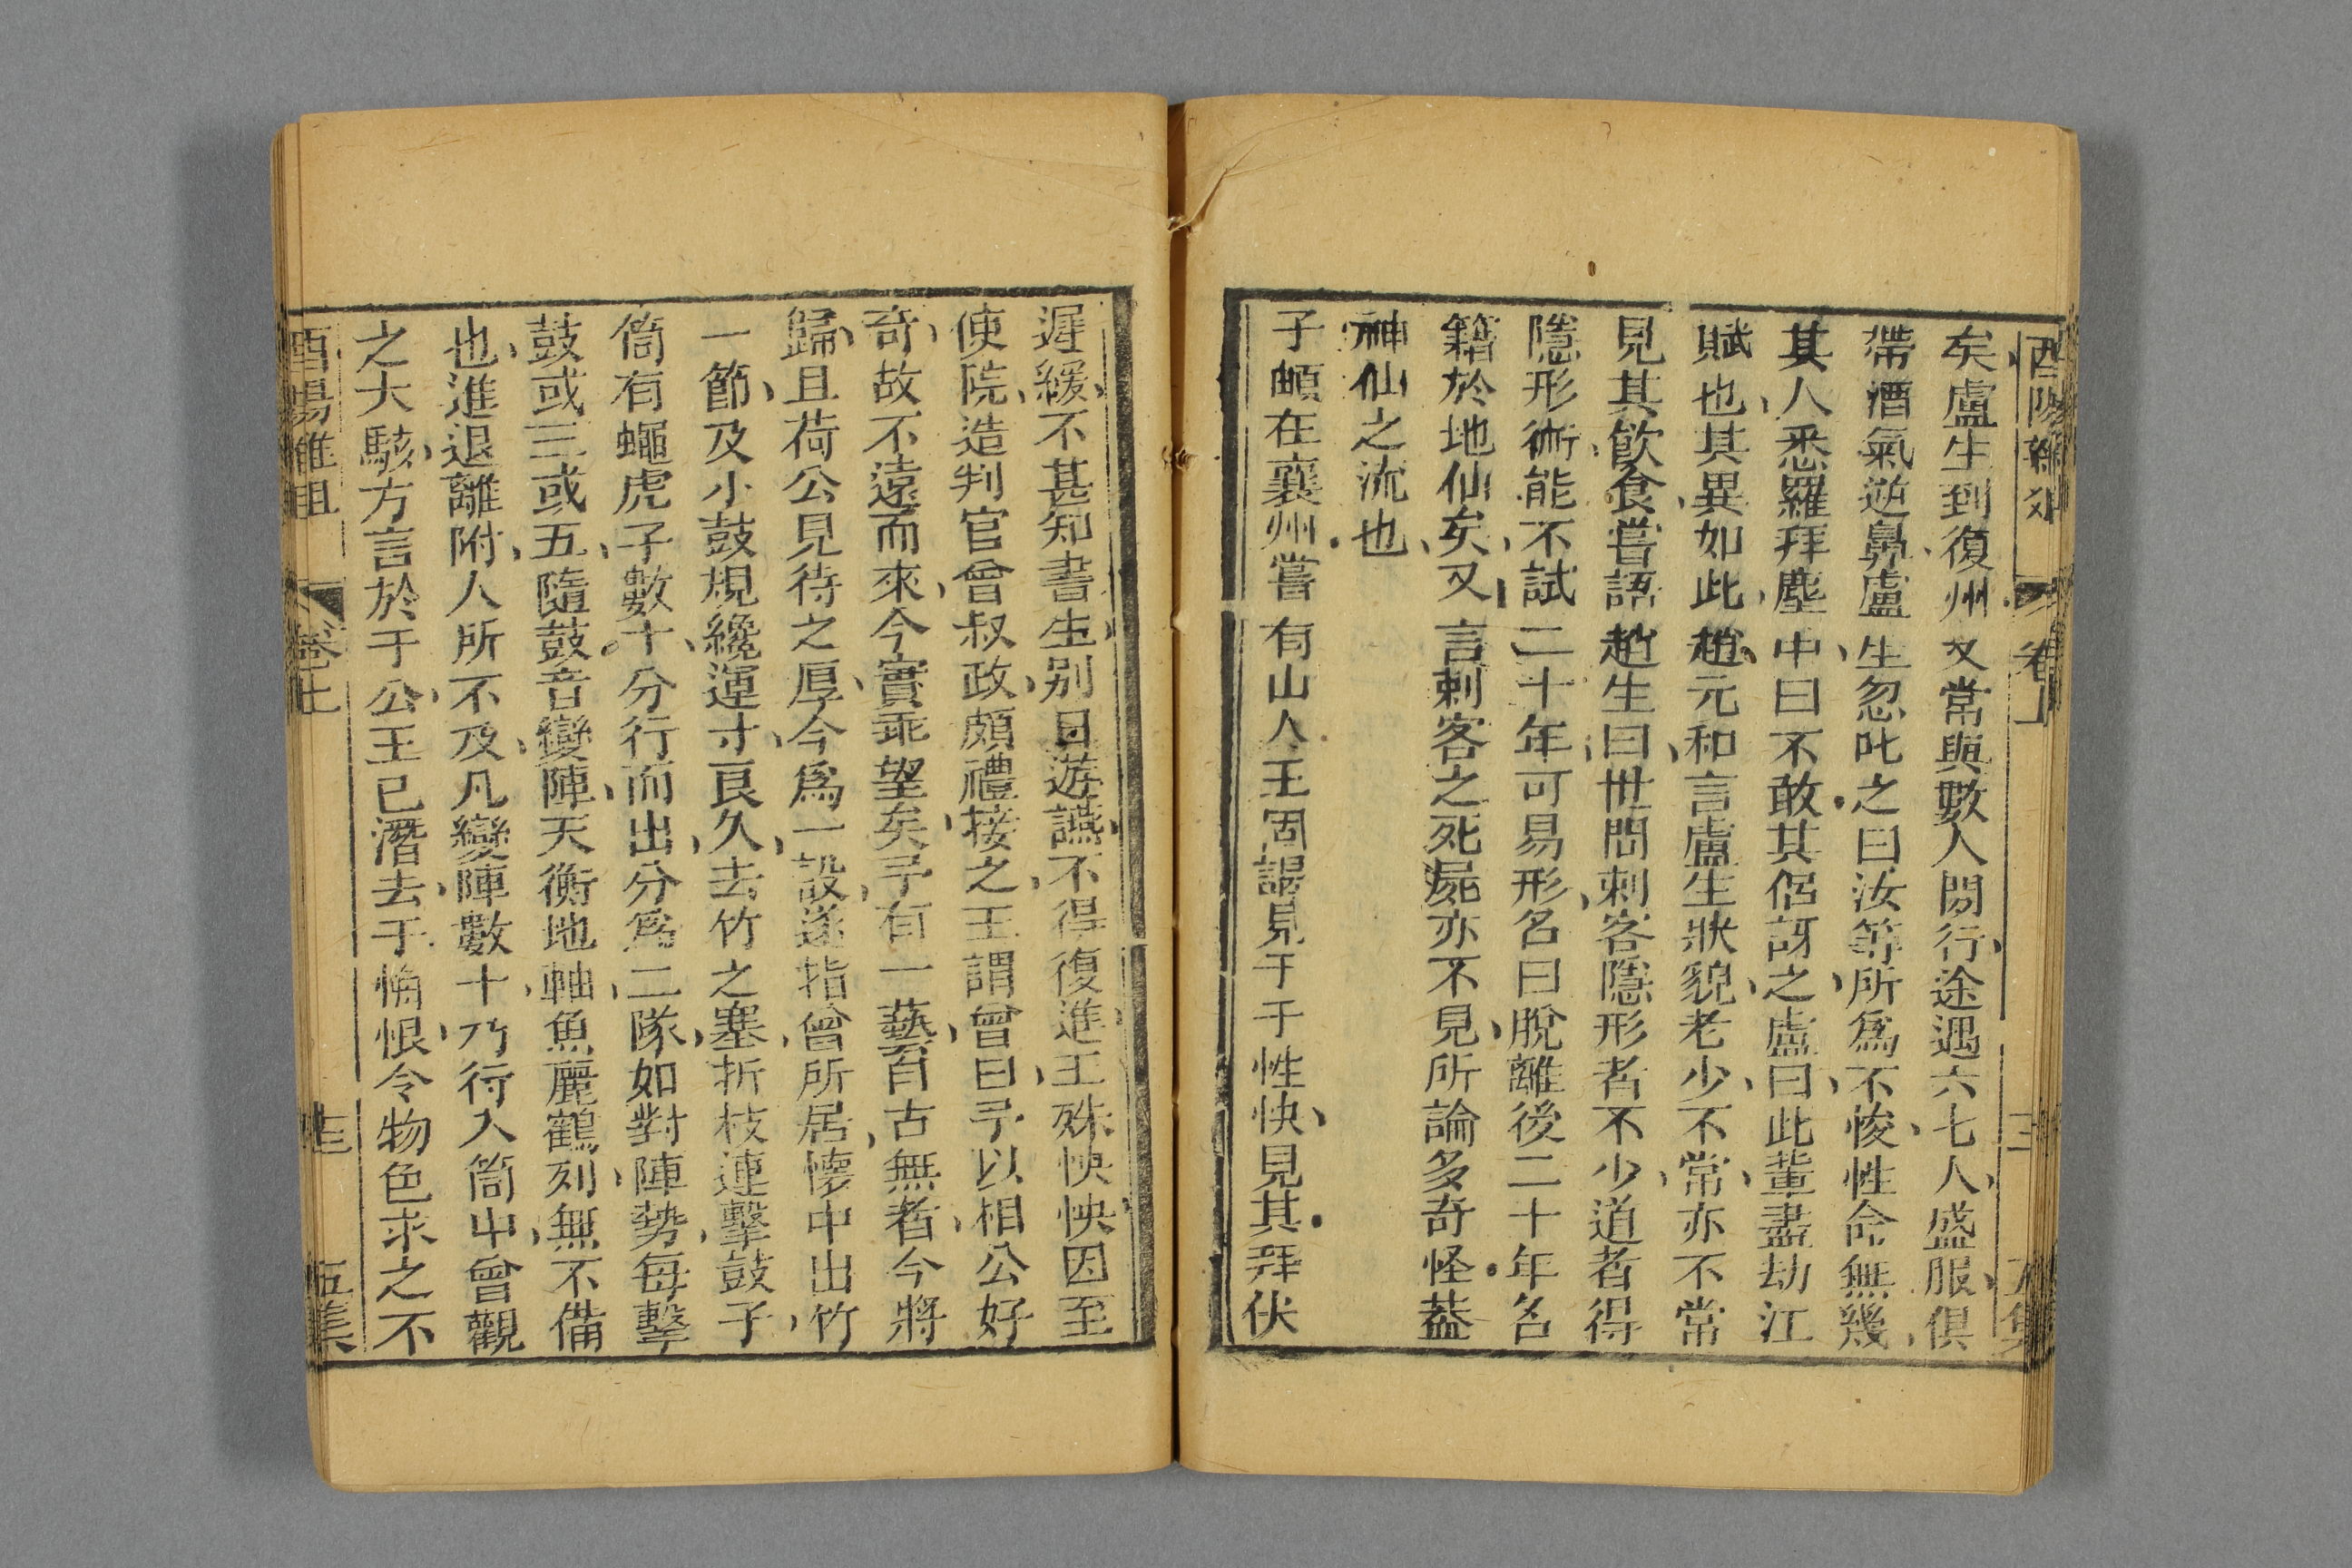 酉陽雜俎 卷上 五集
矣盧生到復州又常與數人閒行途遇六七人盛服俱
帶酒氣逆鼻盧生忽叱之曰汝等所為不悛性命無幾
其人悉羅拜塵中曰不敢其侶訝之盧曰此輩盡劫江
賦也其異如此趙元和言盧生狀貌老少不常亦不常
見其飲食嘗語趙生曰世間刺客隱形者不少道者得
隱形術能不試二十年可易形名曰脫離後二十年名
籍於地仙矣又言刺客之死屍亦不見所論多奇怪蓋
神仙之流也
子頔在襄州嘗有山人王固謁見于于性快見其拜伏
遲緩不甚知書生别日遊讌不得復進王殊怏怏因至
使院造判官曾叔政頗禮接之王謂曾曰予以相公好
奇故不遠而來今實乖望矣予有一藝自古無者今將
歸且荷公見待之厚今為一設遂指曾所居懷中出竹
一節及小鼓規纔運寸良久去竹之塞折枝連擊鼓子
筒有蠅虎子數十分行而出分為二隊如對陣勢每擊
鼓或三或五隨鼓音變陣天衡地軸魚麗鶴列無不備
也進退離附人所不及凡變陣數十乃行入筒中曾觀
之大駭方言於于公王已潛去于悔恨令物色求之不
酉陽雜俎 卷上 五集